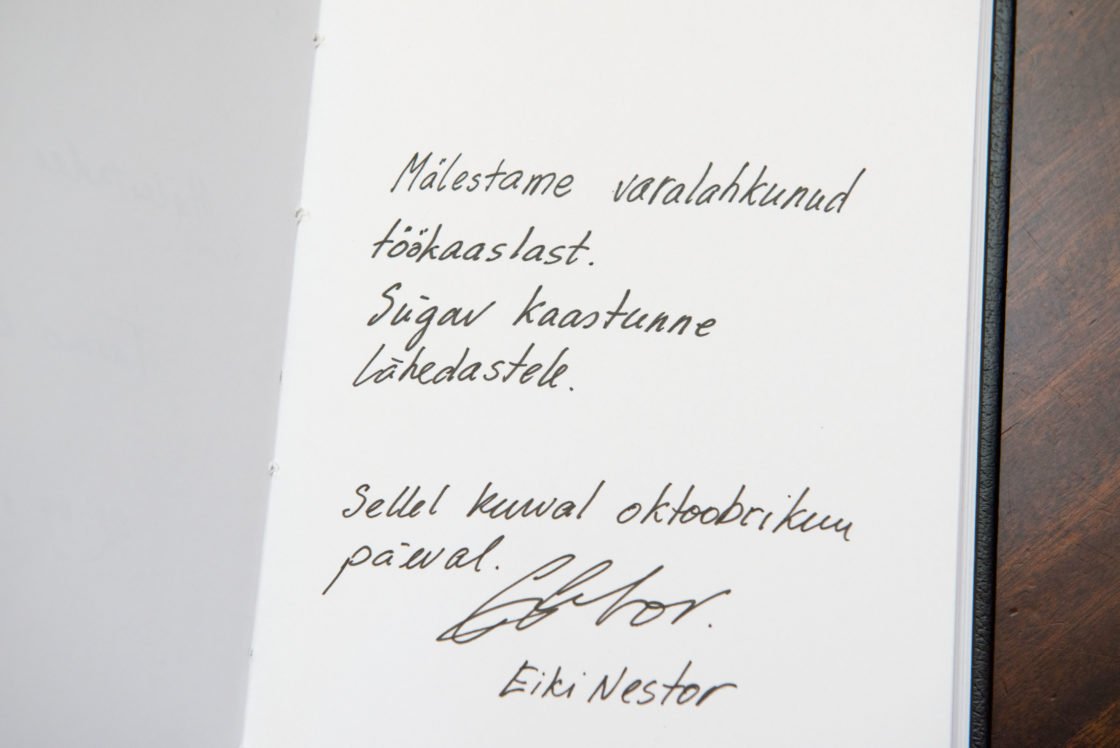 Mälestame varalahkunud
töökaaslast.
Sügav kaastunne
lähedastele.
Sellel kurval oktoobrikuu
päeval.
Eiki Nestor